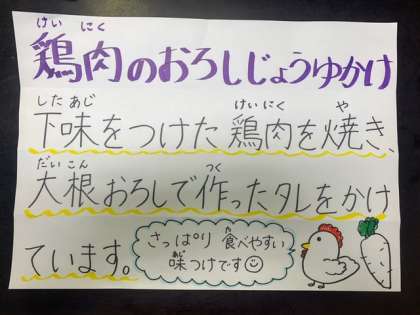 けい にく
鶏肉のおろしじょうゆかけ
した あじ けい にく や
下味をつけた鶏肉を焼き、
だい こん つく
大根おろしで作ったタレをかけ
ています。
さっぱり食べやすい
味つけです